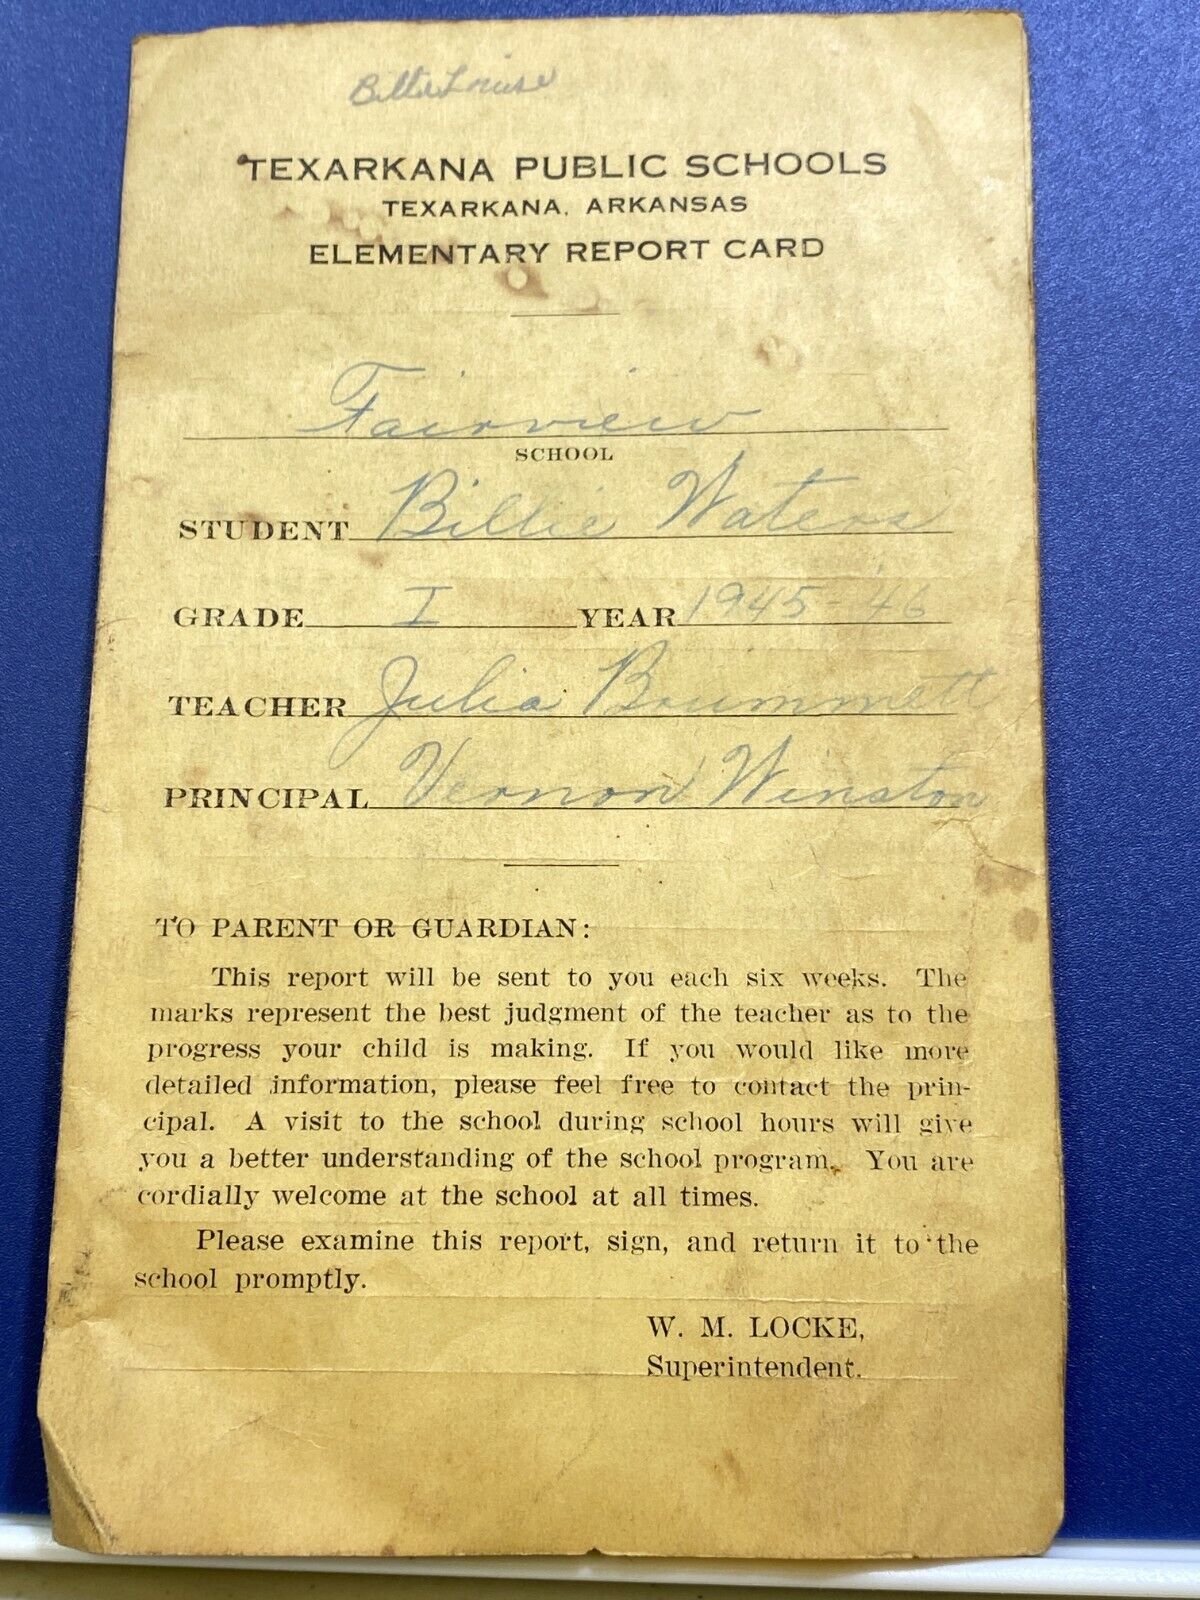 Billie Louise
TEXARKANA PUBLIC SCHOOLS
TEXARKANA, ARKANSAS
ELEMENTARY REPORT CARD
Fairview
SCHOOL
STUDENT Billie Waters
GRADE I YEAR 1945-'46
TEACHER Julia Brummett
PRINCIPAL Vernon Winston
TO PARENT OR GUARDIAN:
This report will be sent to you each six weeks. The
marks represent the best judgment of the teacher as to the
progress your child is making. If you would like more
detailed information, please feel free to contact the prin-
cipal. A visit to the school during school hours will give
you a better understanding of the school program. You are
cordially welcome at the school at all times.
Please examine this report, sign, and return it to the
school promptly.
W. M. LOCKE,
Superintendent.